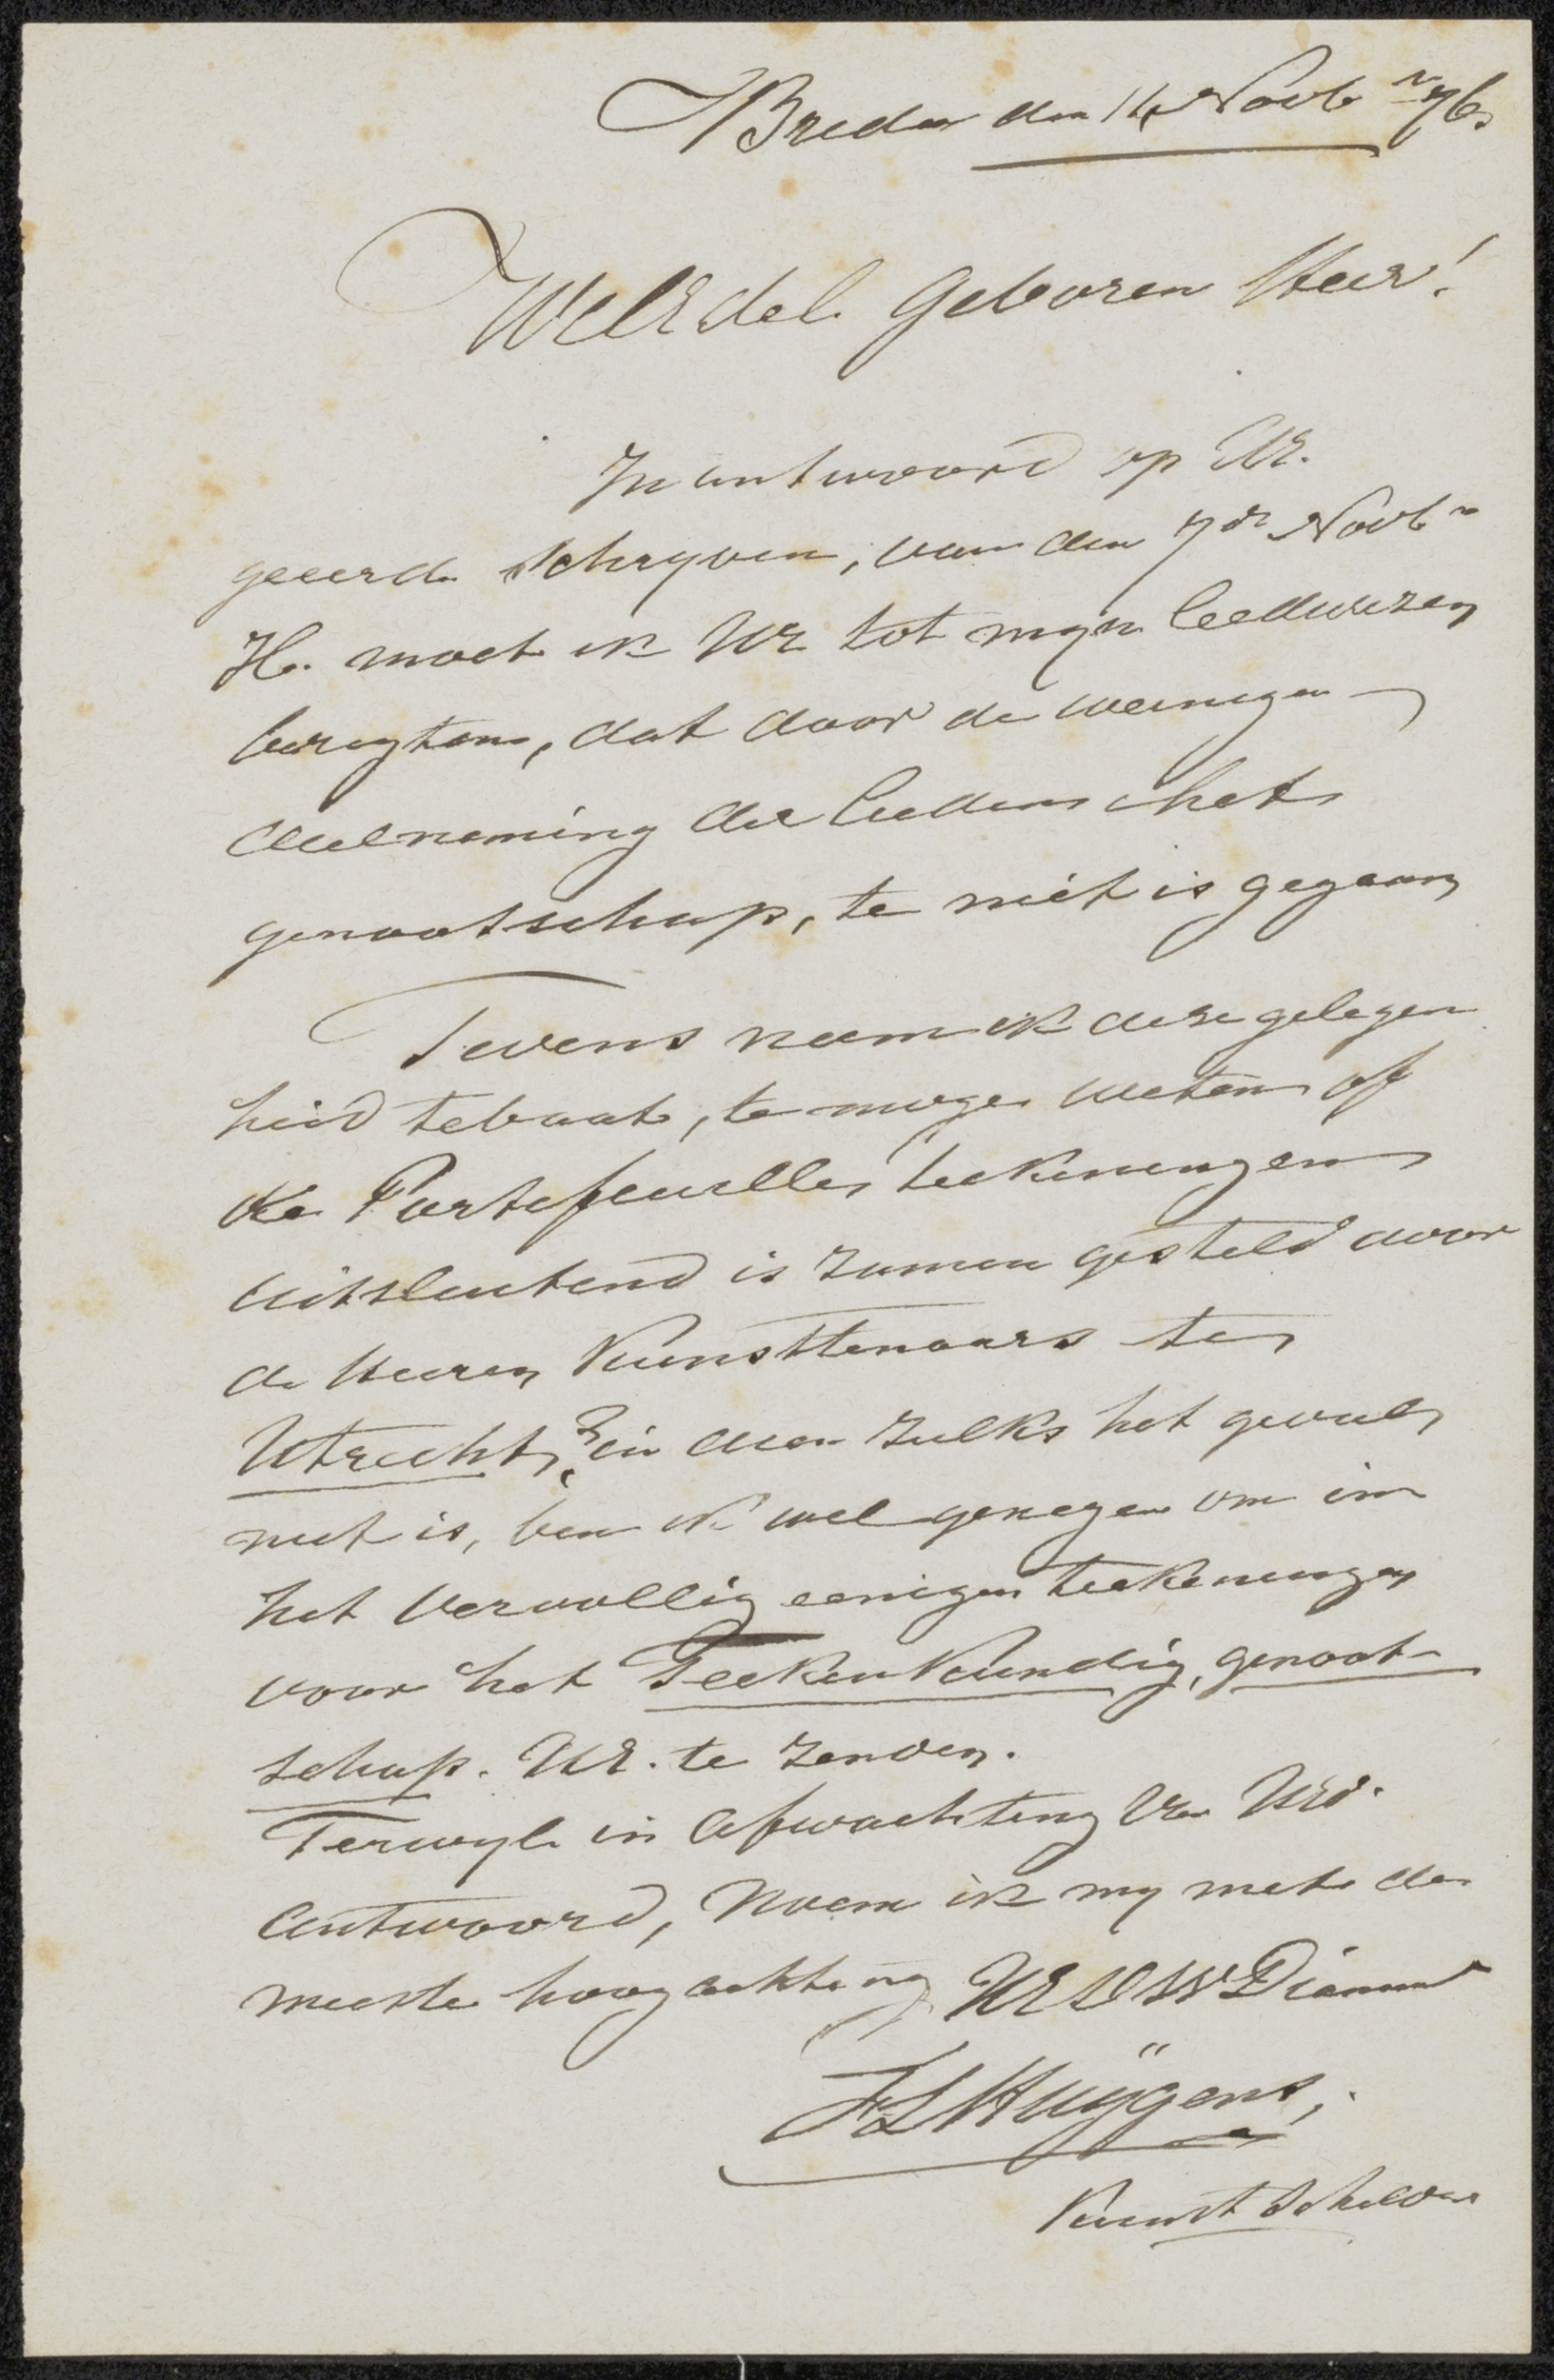 Breda den 14 Novb r 76
WelEdel Geboren Heer!
In antwoord op UE.
geeerde schryven, van den 7de Novb r
Hr. moet ik UE tot myn leedwezen
berigten, dat door de weinigen
deelneming der leeden het
genootschap, te niet is gegaan
Tevens neem ik deze gelegen
heid tebaat, te mogen weten of
de Portefeuille teekeningen
uitsluitend is zamen gesteld door
de Heeren Kunsttenaars te
Utrecht? in dien zulks het geval
niet is, ben ik wel genegen om in
het vervollig eenigen teekeningen
voor het Teekenkundig, genoot-
schap. UE. te zenden.
Terwyl in afwachting van UEd.
antwoord, Noem ik my met de
meeste hoog achting UEDW Dienaar
F L Huÿgens,
Kunst Schilder